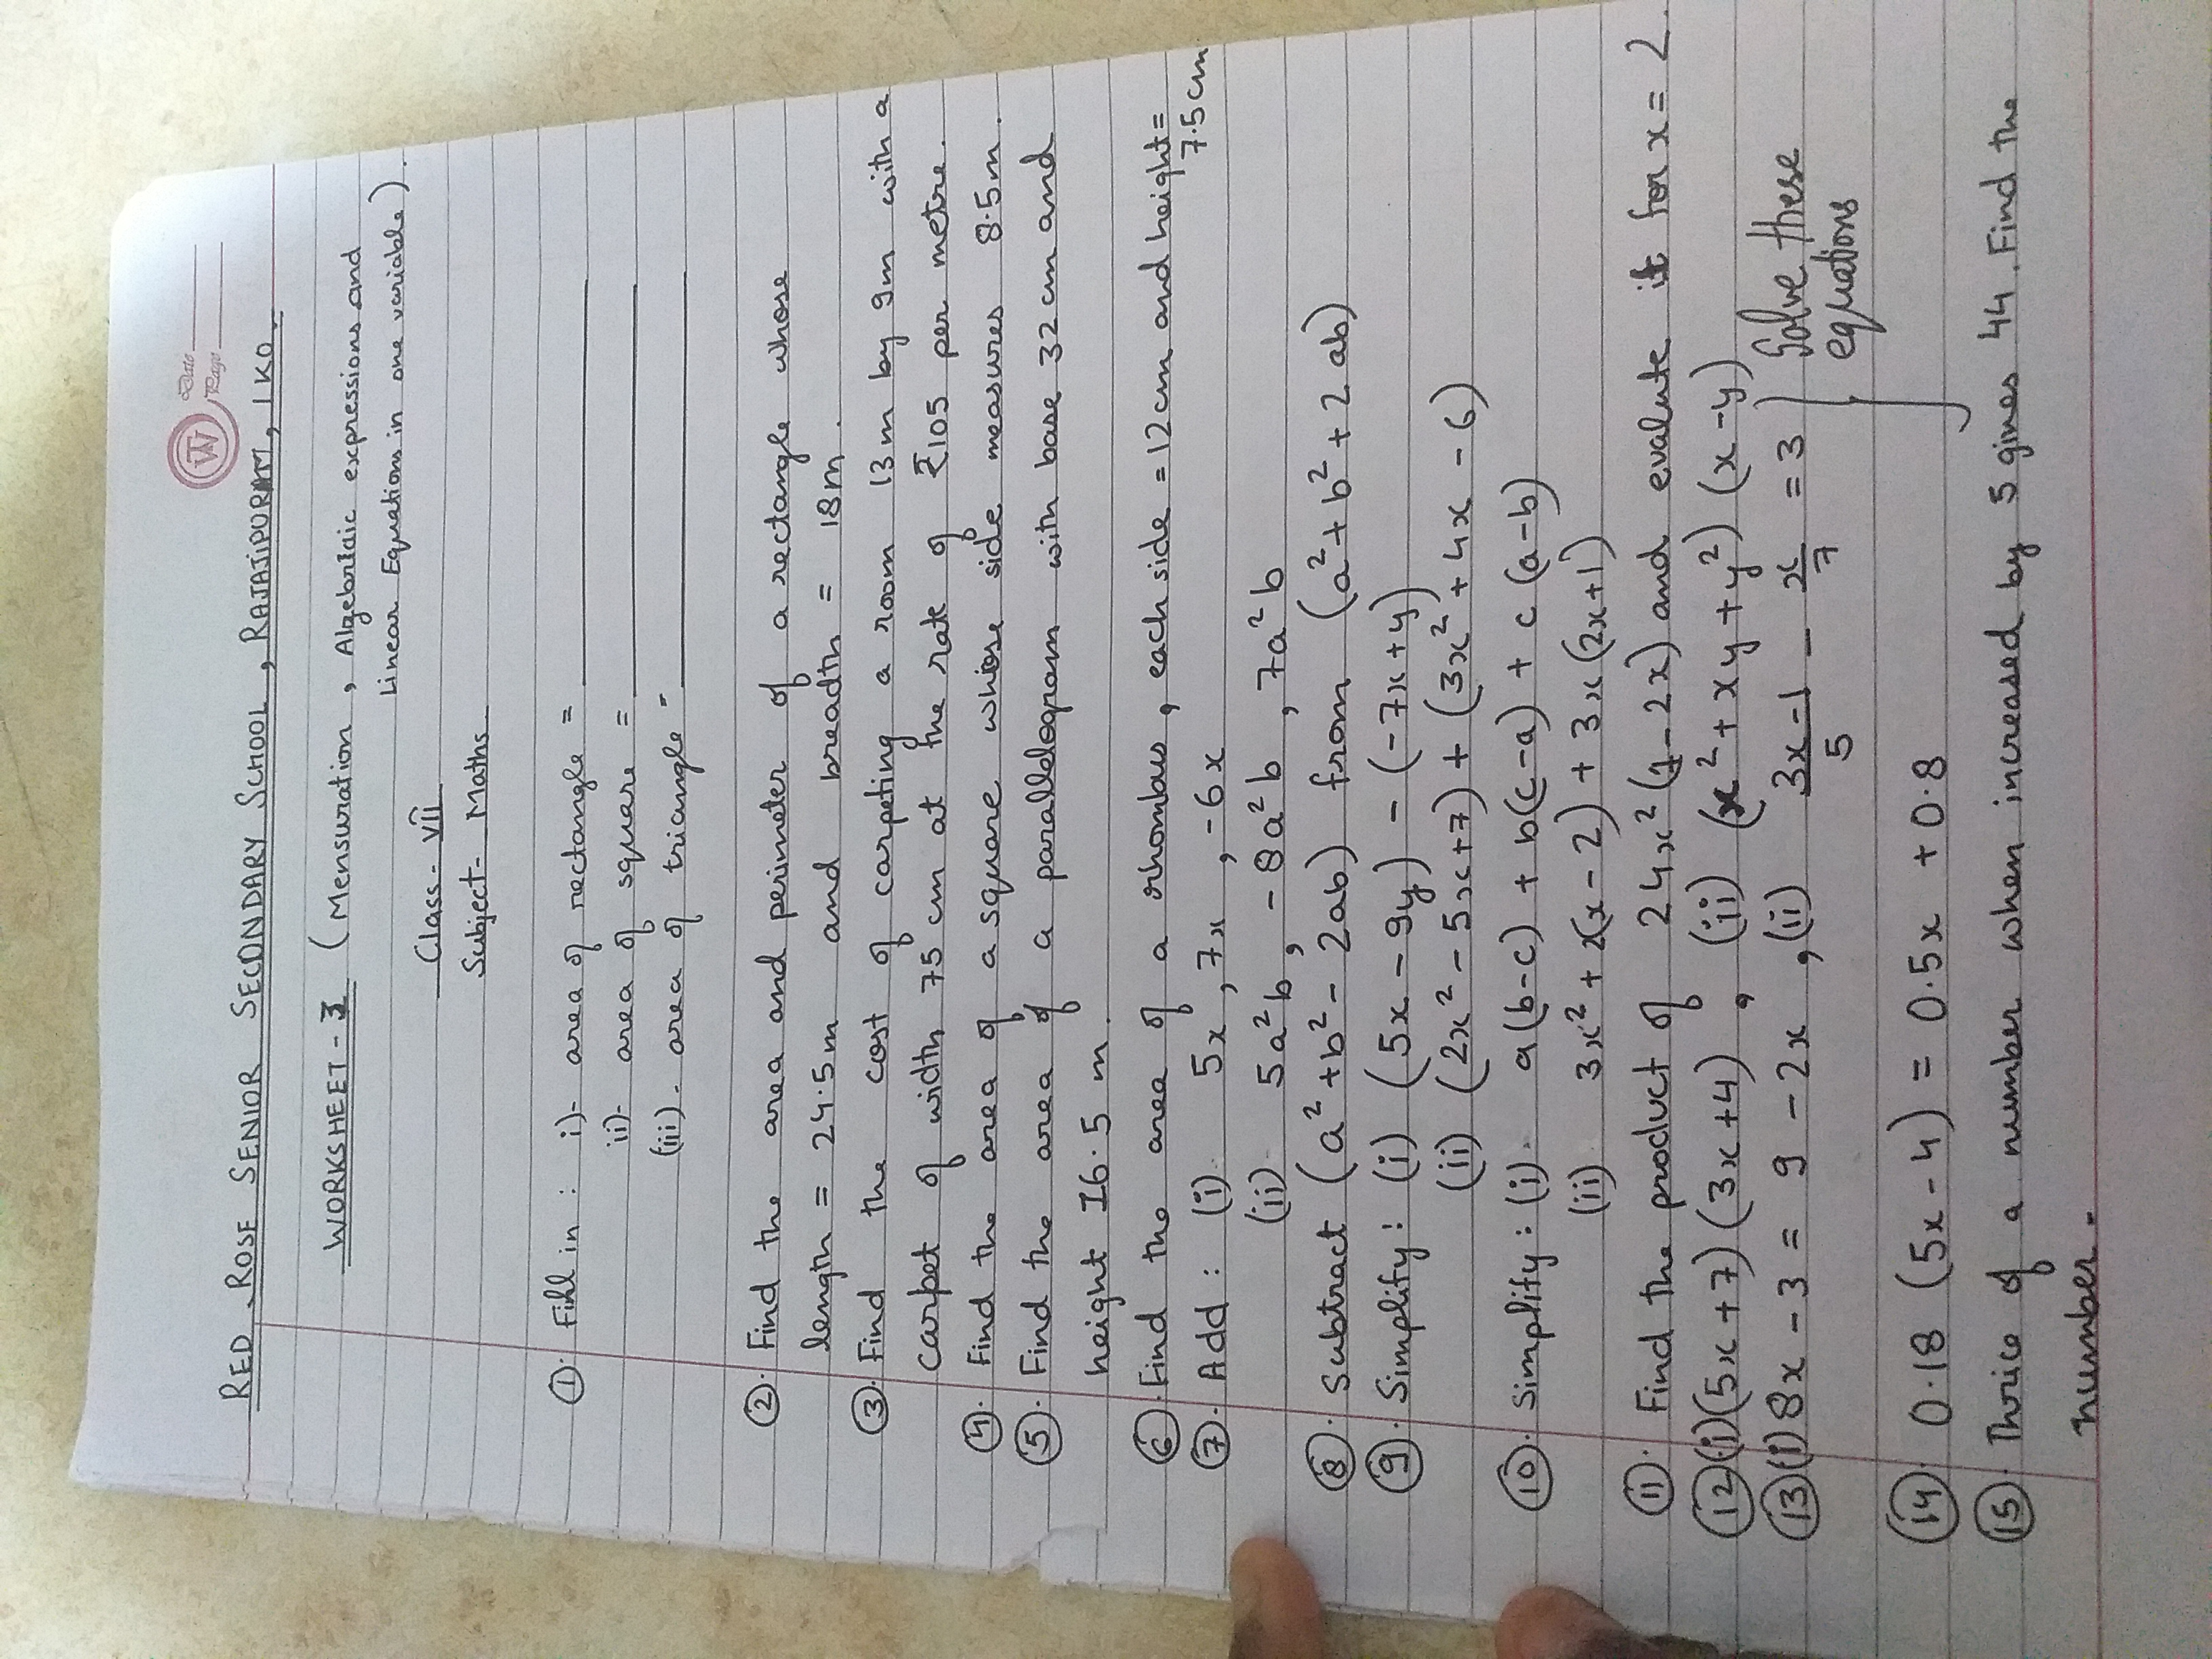 Date
Page
RED ROSE SENIOR SECONDARY SCHOOL, RAJAJIPURAM, LKO.
WORKSHEET-3 (Mensuration, Algebraic expressions and
Linear Equations in one variable).
Class- VII
Subject- Maths
①. Fill in : i)- area of rectangle =
ii)- area of square =
(iii)- area of triangle -
②. Find the area and perimeter of a rectangle whose
length = 24.5m and breadth = 18m.
③. Find the cost of carpeting a room 13m by 9m with a
carpet of width 75 cm at the rate of ₹105 per metre.
④. Find the area of a square whose side measures 8.5m.
⑤. Find the area of a parallelogram with base 32cm and
height 16.5 m.
⑥. Find the area of a rhombus, each side = 12cm and height =
7.5cm
⑦. Add : (i) 5x, 7x, -6x
(ii) 5a²b, -8a²b, 7a²b
⑧. Subtract (a²+b²-2ab) from (a²+b²+2ab)
⑨. Simplify : (i) (5x-9y) - (-7x+y)
(ii) (2x²-5x+7) + (3x²+4x-6)
⑩. Simplify : (i). a(b-c) + b(c-a) + c(a-b)
(ii) 3x²+x(x-2) + 3x(2x+1)
⑪. Find the product of 24x²(1-2x) and evaluate it for x = 2.
⑫(i)(5x+7)(3x+4), (ii) (x²+xy+y²)(x-y)
⑬(i) 8x-3 = 9-2x, (ii) (3x-1)/5 - x/7 = 3 } Solve these
equations
⑭. 0.18 (5x-4) = 0.5x + 0.8
⑮. Thrice of a number when increased by 5 gives 44. Find the
number.